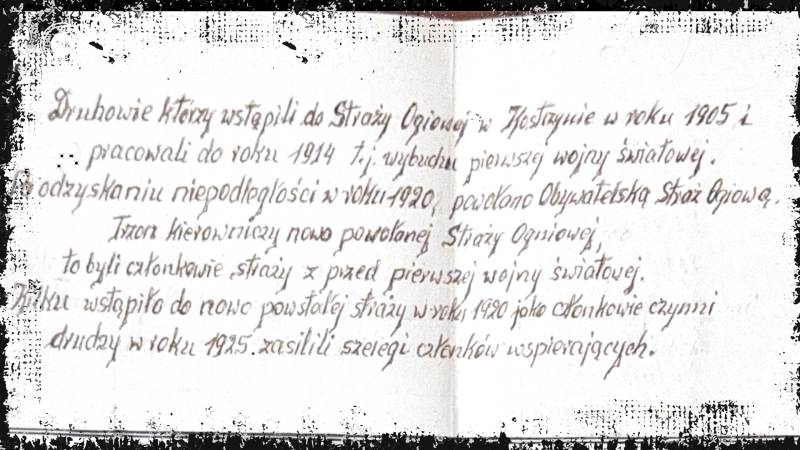 Druhowie którzy wstąpili do Straży Ogiowej w Kostrzynie w roku 1905 i
pracowali do roku 1914 t.j. wybuchu pierwszej wojny światowej.
Po odzyskaniu niepodległości w roku 1920, powołano Obywatelską Straż Ogiową.
Trzon kierowniczy nowo powołanej Straży Ogniowej,
to byli członkowie straży z przed pierwszej wojny światowej.
Kilku wstąpiło do nowo powstałej straży w roku 1920 jako członkowie czynni
drudzy w roku 1925. zasilili szeregi członków wspierających.